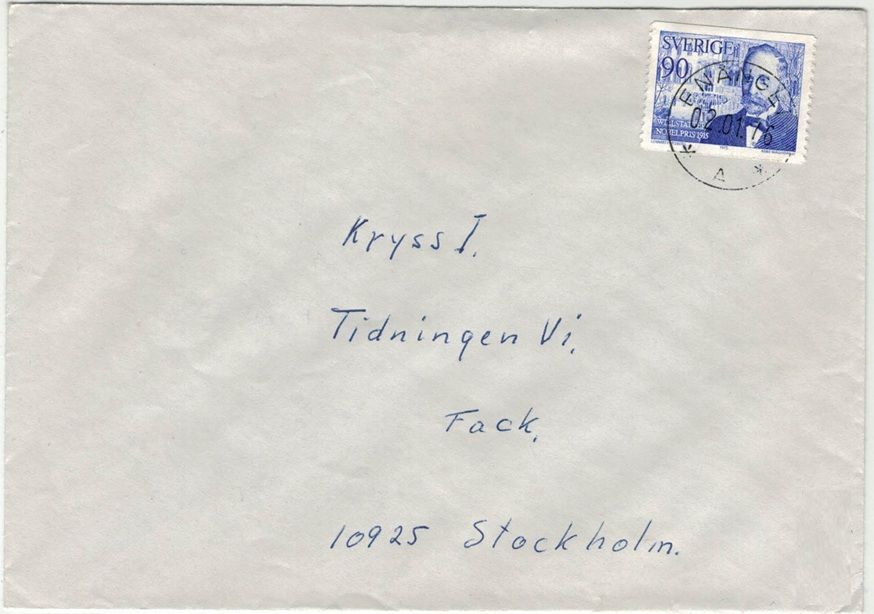 SVERIGE
90
NOBELPRIS 1915
ENÅNGER
02.01.76
A
Kryss I.
Tidningen Vi,
Fack,
10925 Stockholm.